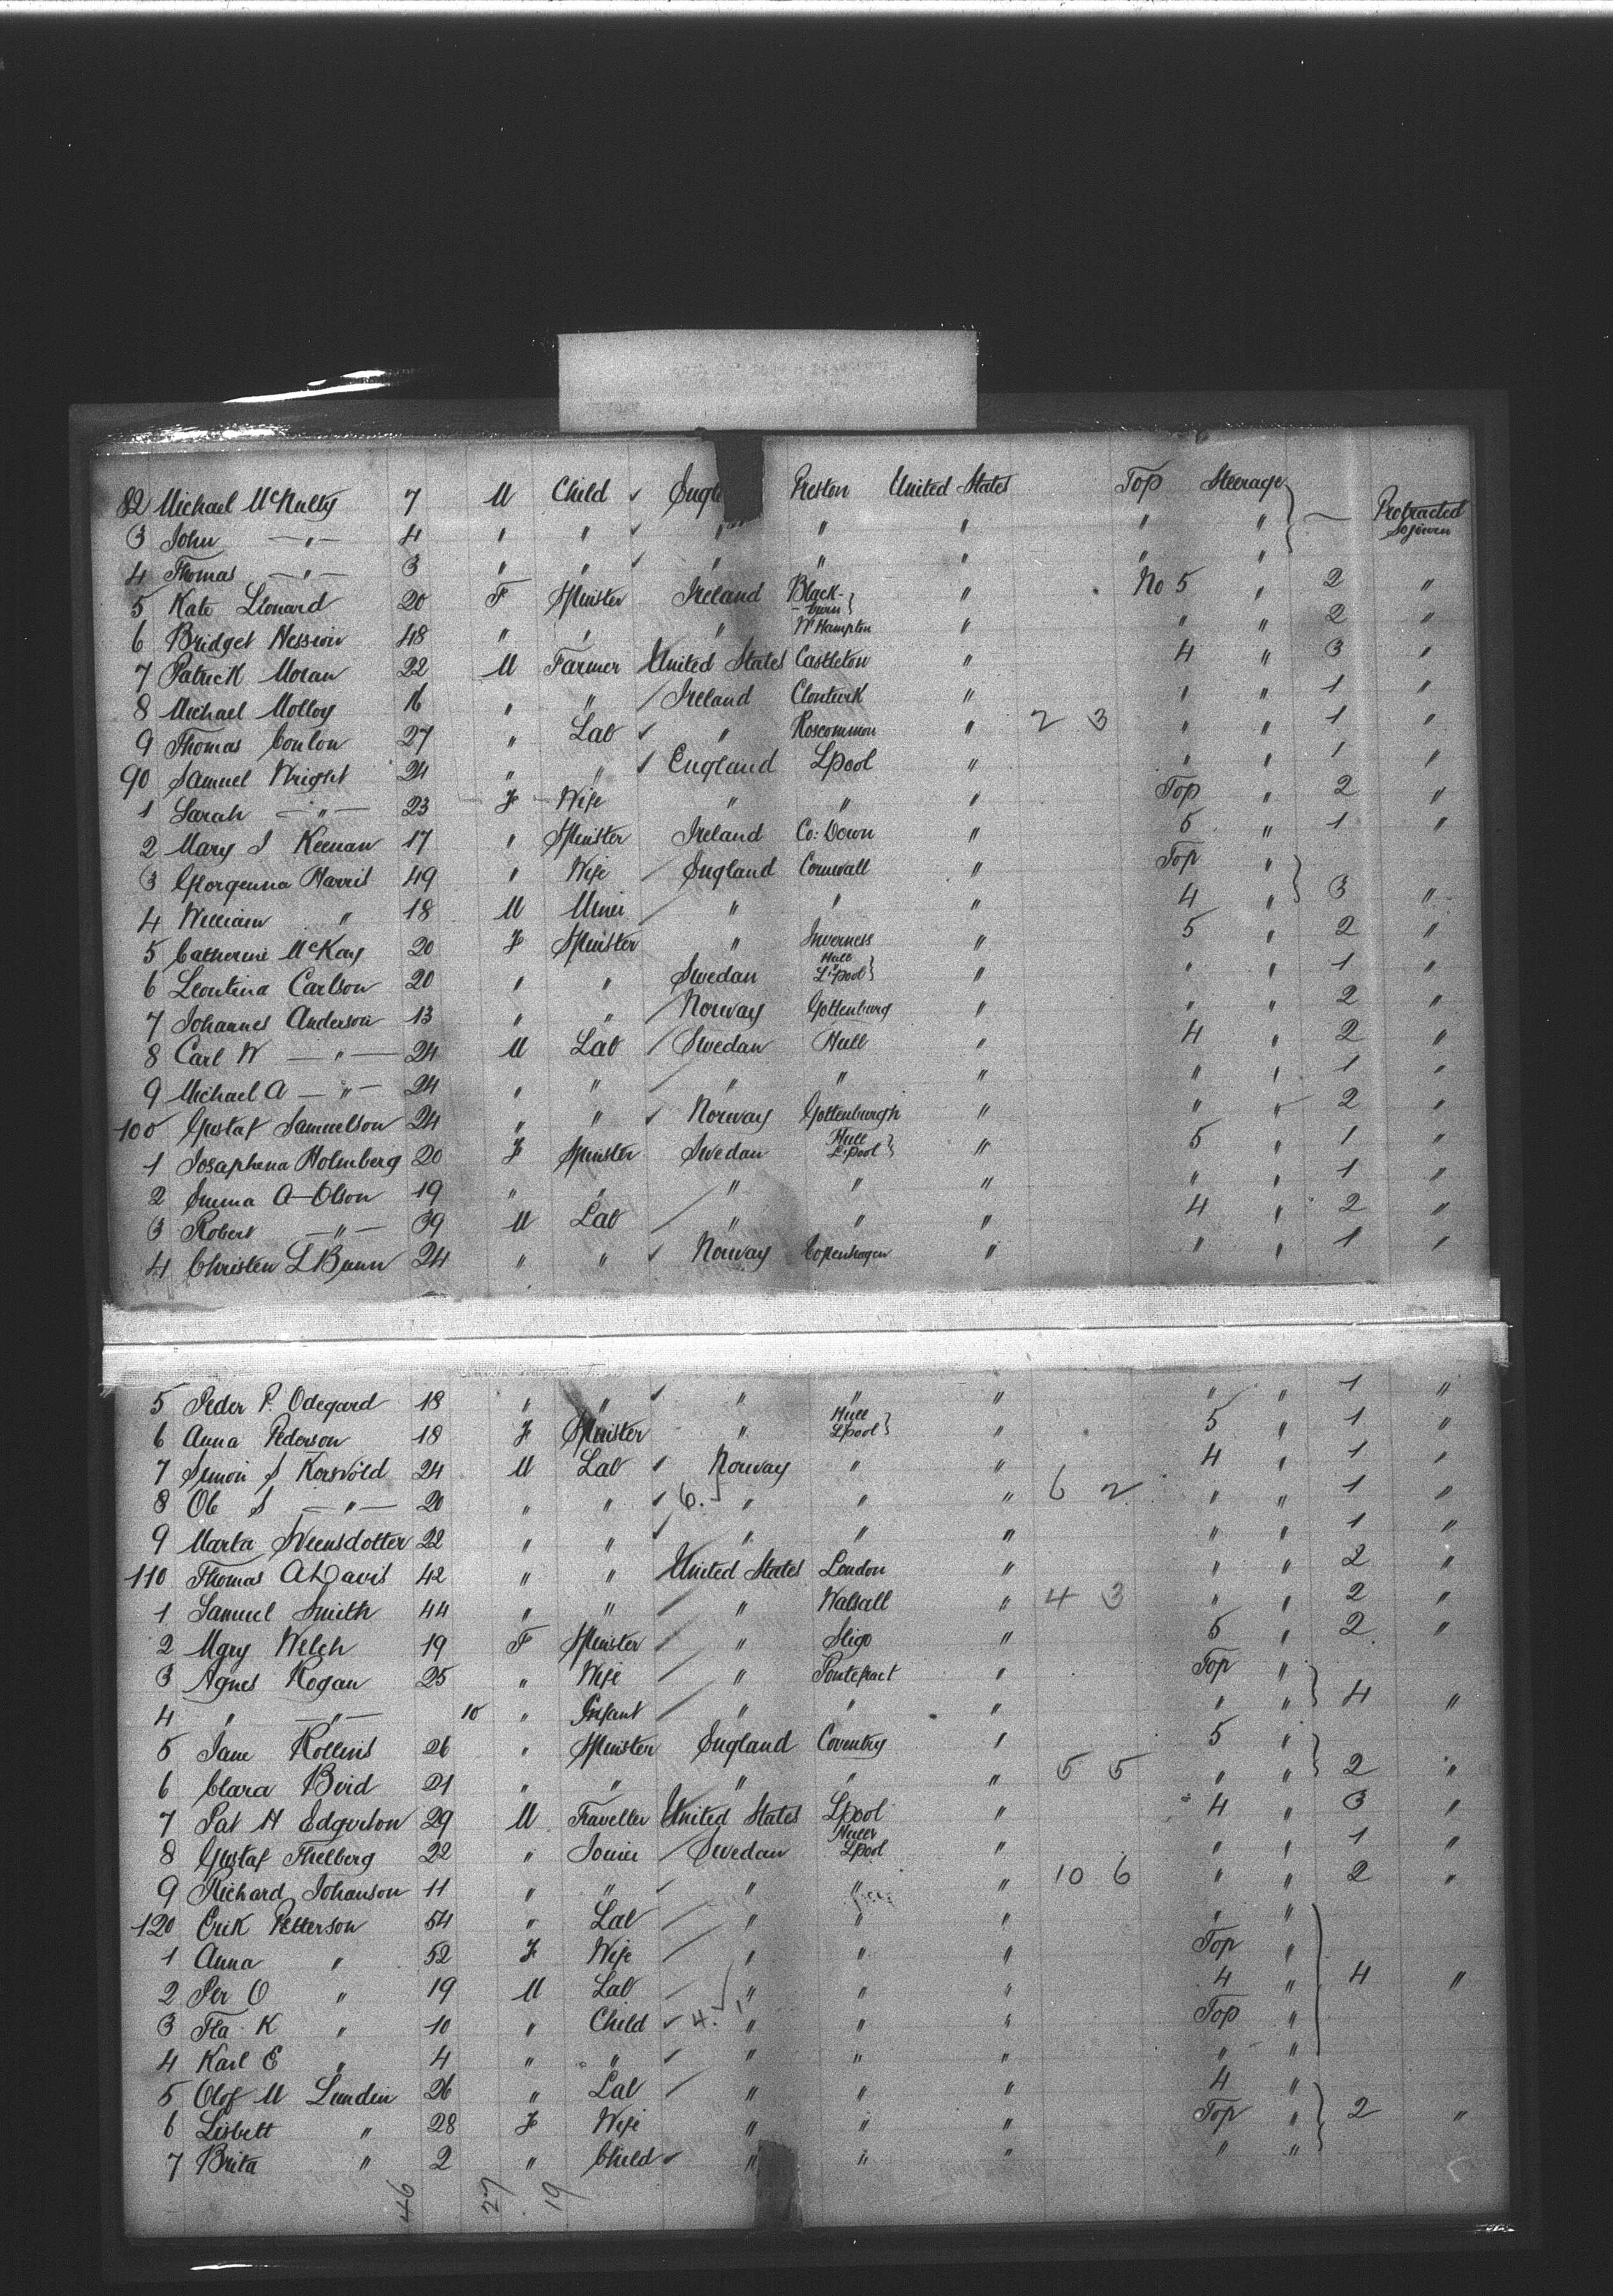 82 Michael McNulty 7 M Child ✓ Engl Preston United States Top Steerage } — Protracted Sojourn
3 John — " — 4 " " ✓ " " " " "
4 Thomas — " — 3 " " ✓ " " " " "
5 Kate Leonard 20 F Spinster Ireland Black-burn } " No 5 " 2 "
6 Bridget Nession 48 " " " W Hampton " " " 2 "
7 Patrick Moran 22 M Farmer United States Castleton " 4 " 3 "
8 Michael Molloy 16 " " / Ireland " " " 1 "
9 Thomas Conlon 27 " Lab ✓ " Roscommon " 2 3 " " 1 "
90 Samuel Wright 24 " " ✓ England Lpool " " " 1 "
1 Sarah — " — 23 F Wife " " " Top " 2 "
2 Mary J Keenan 17 " Spinster Ireland Co: Down " 5 " 1 "
3 Georgenna Harris 49 " Wife / England Cornwall " Top " }
4 William " 18 M Miner / " " " 4 " 3 "
5 Catherine McKay 20 F Spinster " Inverness " 5 " 2 "
6 Leontina Carlson 20 " " Swedan Hull L'pool } " " " 1 "
7 Johannes Anderson 13 " " / Norway Gottenburg " " " 2 "
8 Carl W — " — 24 M Lab / Swedan Hull " 4 " 2 "
9 Michael A — " — 24 " " / " " " " " 1 "
100 Gustaf Samuelson 24 " " ✓ Norway Gottenburgh " " " 2 "
1 Josaphena Holmberg 20 F Spinster Swedan Hull L'pool } " 5 " 1 "
2 Emma A Olson 19 " " / " " " " " 1 "
3 Robert — " — 39 M Lab / " " " 4 " 2 "
4 Christen L Bunn 24 " " ✓ Norway Copenhagen " " " 1 "
5 Peder P. Odegard 18 " " ✓ " " " " " 1 "
6 Anna Pederson 18 F Spinster " Hull Lpool } " 5 " 1 "
7 Simon S Korsvold 24 M Lab ✓ Norway " " 4 " 1 "
8 Ole S — " — 20 " " ✓ 6. " " " 6 2 " " 1 "
9 Marta Svensdotter 22 " " ✓ " " " " " 1 "
110 Thomas A Davis 42 " " United States London " " " 2 "
1 Samuel Smith 44 " " / " Walsall " 4 3 " " 2 "
2 Mary Welch 19 F Spinster / " Sligo " 5 " 2 "
3 Agnes Rogan 25 " Wife / " Pontefract " Top " }
4 " — " — 10 " Infant / " " " " " 4 "
5 Jane Rollins 26 " Spinster England Coventry " 5 " }
6 Clara Bird 21 " " / " " " 5 5 " " 2 "
7 Pat H Edgerton 29 M Traveller United States Lpool " 4 " 3 "
8 Gustaf Thelberg 22 " Joiner / Swedan Hull Lpool " " " 1 "
9 Richard Johanson 11 " " ✓ " " " 10 6 " " 2 "
120 Erik Petterson 54 " Lab / " " " " "
1 Anna " 52 F Wife / " " " Top "
2 Per O " 19 M Lab / " " " 4 " 4 "
3 Fla K " 10 " Child ✓ 4. " " " Top "
4 Karl E " 4 " " ✓ " " " " "
5 Olof M Lundin 26 " Lab / " " " 4 "
6 Lisbett " 28 F Wife " " " Top " 2 "
7 Brita " 2 " Child ✓ " " " " "
46 27 19